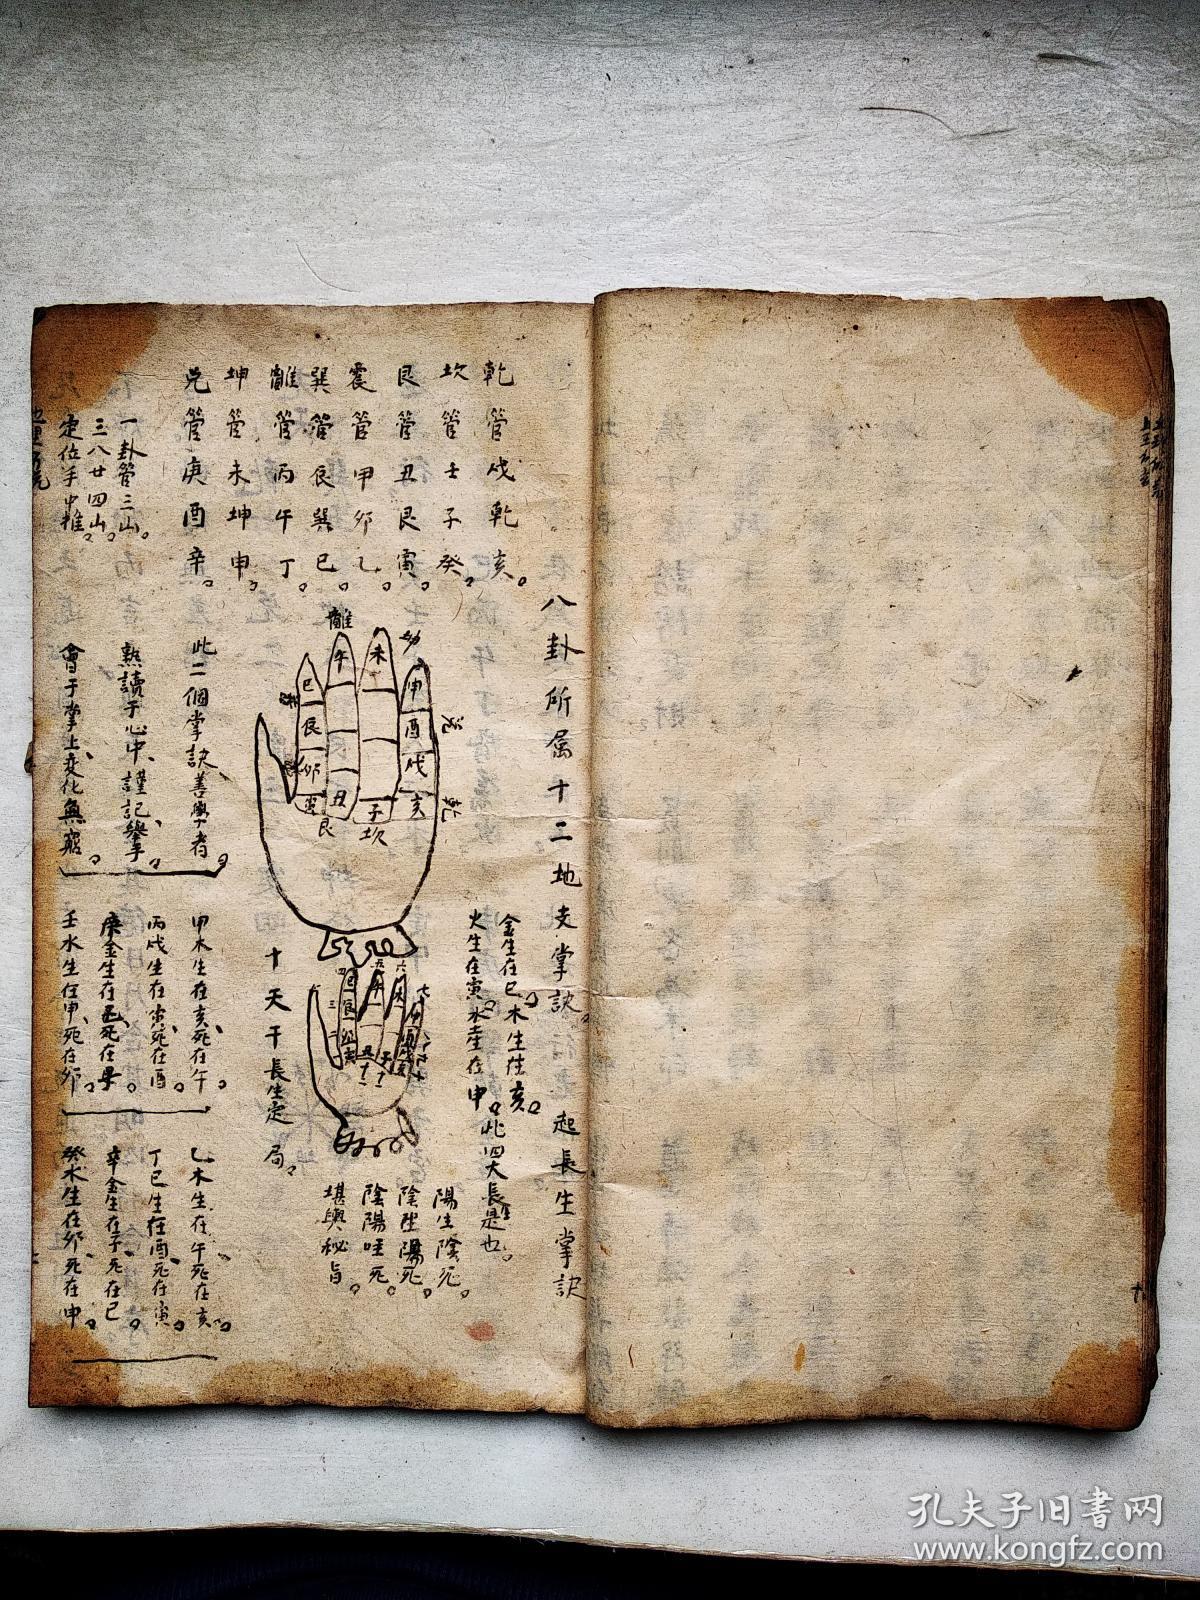 乾管戌乾亥。
坎管壬子癸。
艮管丑艮寅。
震管甲卯乙。
巽管辰巽巳。
離管丙午丁。
坤管未坤申。
兌管庚酉辛。
一卦管三山。
三八廿四山。
定位手中推。
八卦所属十二地支掌訣
起長生掌訣
離
午
未
申
酉
戌
亥
子
丑
卯
辰
巳
兌
乾
坎
艮
此二個掌訣善學者。
熟讀于心中、謹記舉手、
會于掌上、变化無窮。
金生在巳、木生在亥。
火生在寅、水生在申。
此四大長生是也。
十天干長生定局。
陽生陰死。
陰生陽死。
陰陽旺死。
堪輿秘旨。
甲木生在亥、死在午
丙戊生在寅、死在酉
庚金生在巳、死在子。
壬水生在申、死在卯。
乙木生在午、死在亥。
丁巳生在酉、死在寅。
辛金生在子、死在巳。
癸水生在卯、死在申。
孔夫子旧書网
www.kongfz.com